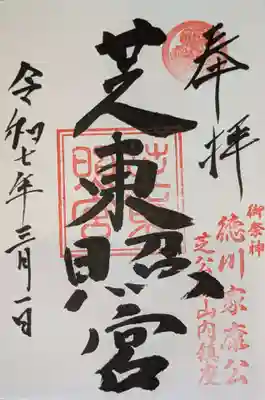 奉拝
御祭神
徳川家康公
芝公園山内鎮座
芝東照宮
令和七年三月一日